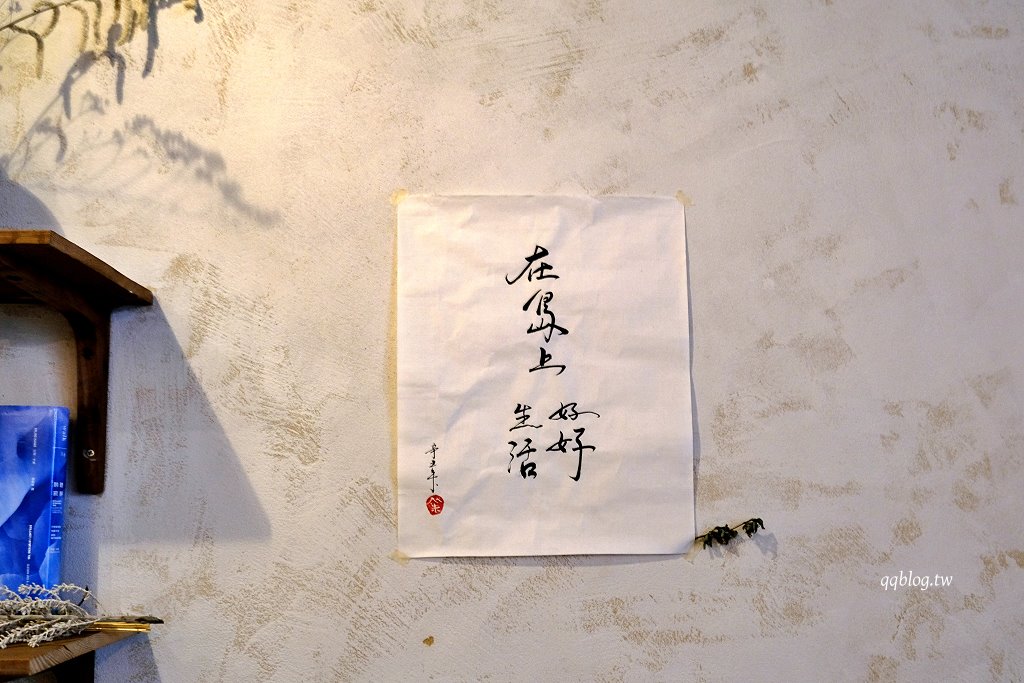 在島上
好好
生活
辛丑年
qqblog.tw